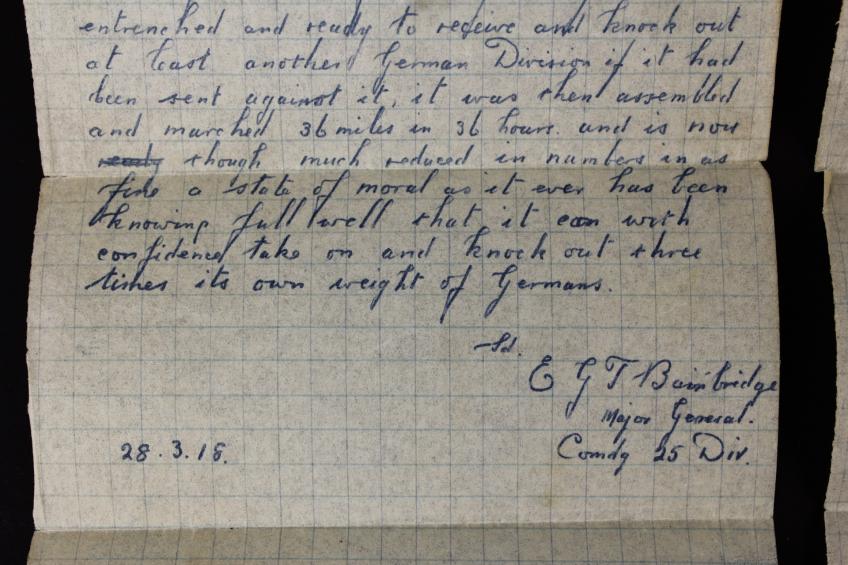 entrenched and ready to receive and knock out
at least another German Division if it had
been sent against it, it was then assembled
and marched 36 miles in 36 hours. and is now
ready though much reduced in numbers in as
fine a state of moral as it ever has been
knowing full well that it can with
confidence take on and knock out three
times its own weight of Germans.
Sd.
E G T Bainbridge
Major General.
28.3.18. Comdg 25 Div.